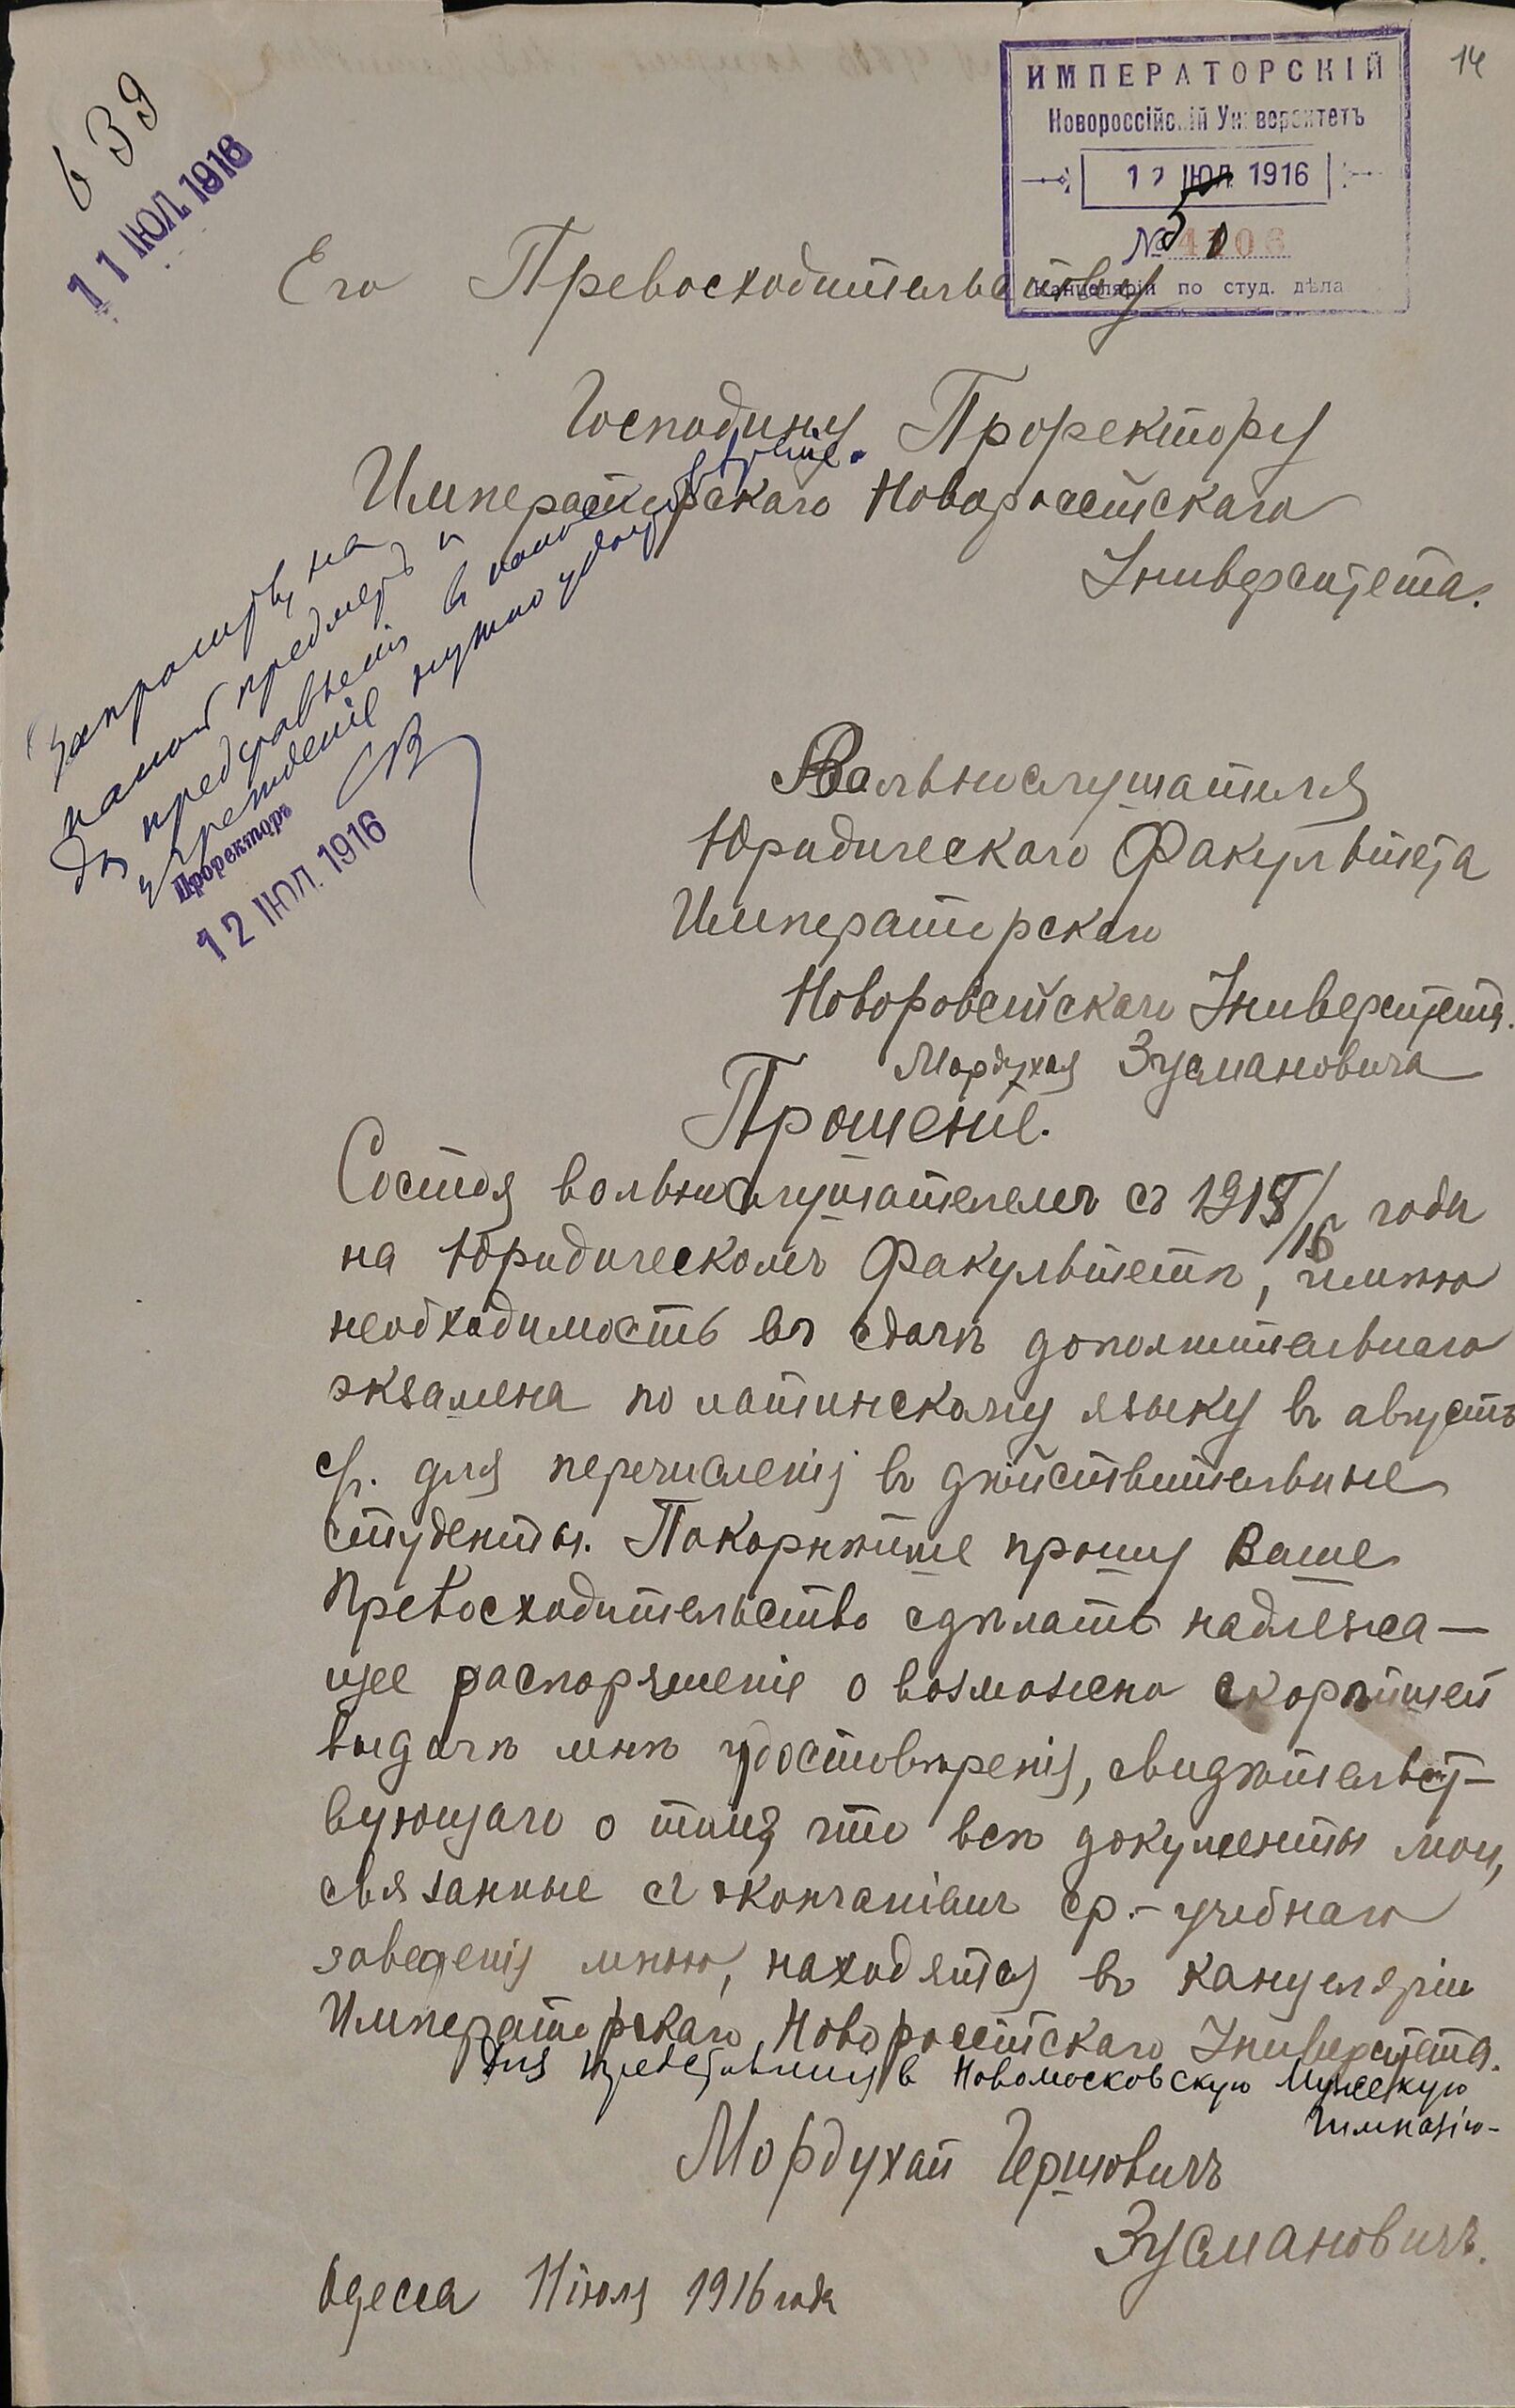 14
639
11 ІЮЛ. 1916
ИМПЕРАТОРСКІЙ
Новороссійскій Университетъ
12 ІЮЛ 1916
№
Канцелярія по студ. дѣла
Его Превосходительству
Господину Проректору
Императорскаго Новороссійскаго
Университета.
на
предметъ и
представленія въ какое
учрежденіе нужно
Проректоръ
12 ІЮЛ. 1916
Вольнослушателя
Юридическаго Факультета
Императорскаго
Новороссійскаго Университета.
Мордухая Зусмановича
Прошеніе.
Состоя вольнослушателемъ съ 1915/16 года
на Юридическомъ Факультетѣ, имѣю
необходимость въ сдачѣ дополнительнаго
экзамена по латинскому языку въ августѣ
с/г. для перечисленія въ дѣйствительные
студенты. Покорнѣйше прошу Ваше
Превосходительство сдѣлать надлежа—
щее распоряженіе о возможно скорѣйшей
выдачѣ мнѣ удостовѣренія, свидѣтельст—
вующаго о томъ, что всѣ документы мои,
связанные съ окончаніемъ ср.-учебнаго
заведенія мною, находятся въ канцеляріи
Императорскаго Новороссійскаго Университета.
Для представленія въ Новомосковскую Мужскую
Гимназію-
Мордухай Гершовичъ
Зусмановичъ.
Одесса 11 іюля 1916 года